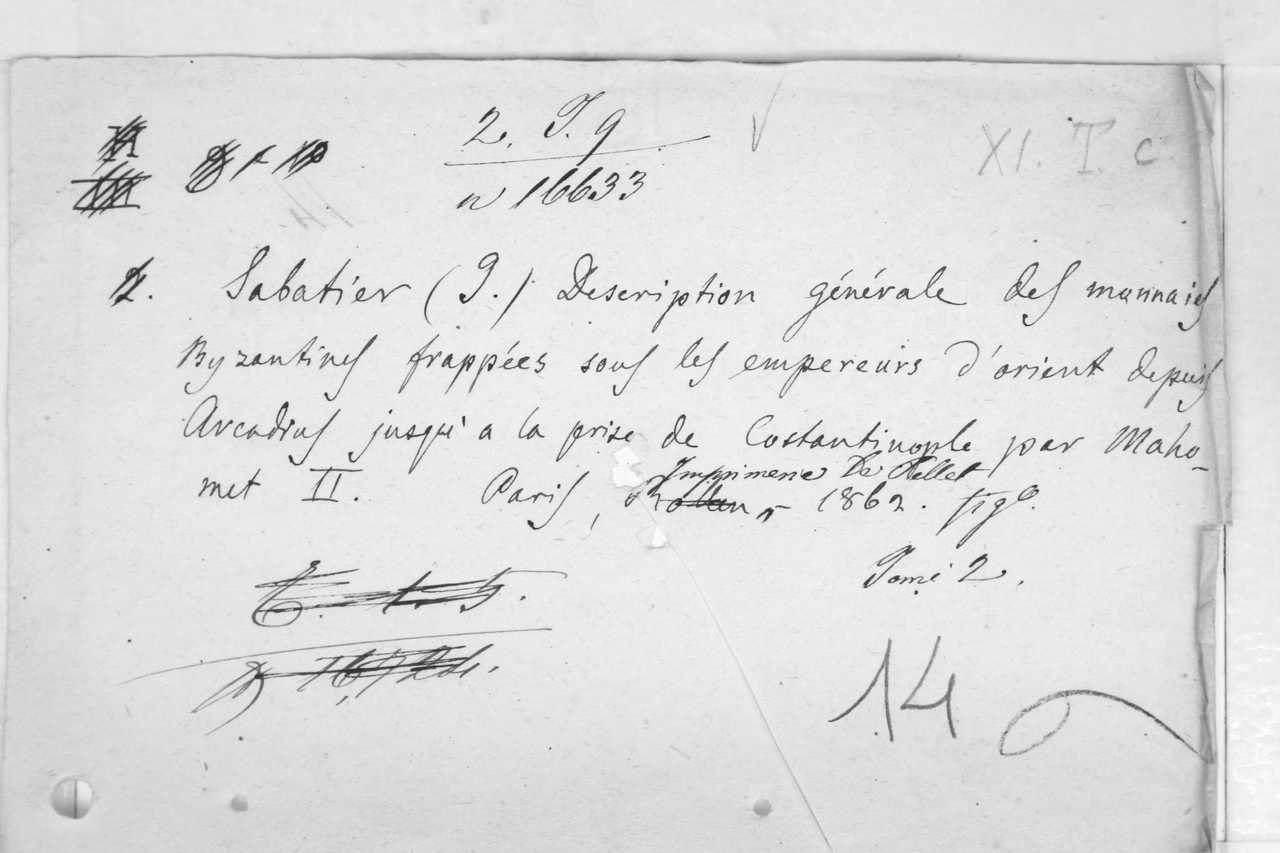 2. T. 9
n 16633
XI. T. c
2. Sabatier (J.) Description générale des monnaies
Byzantines frappées sous les empereurs d'orient depuis
Arcadius jusqu'a la prise de Costantinople par Maho-
met II. Paris, Imprimerie De 1862. fig.
Tome 2.
14